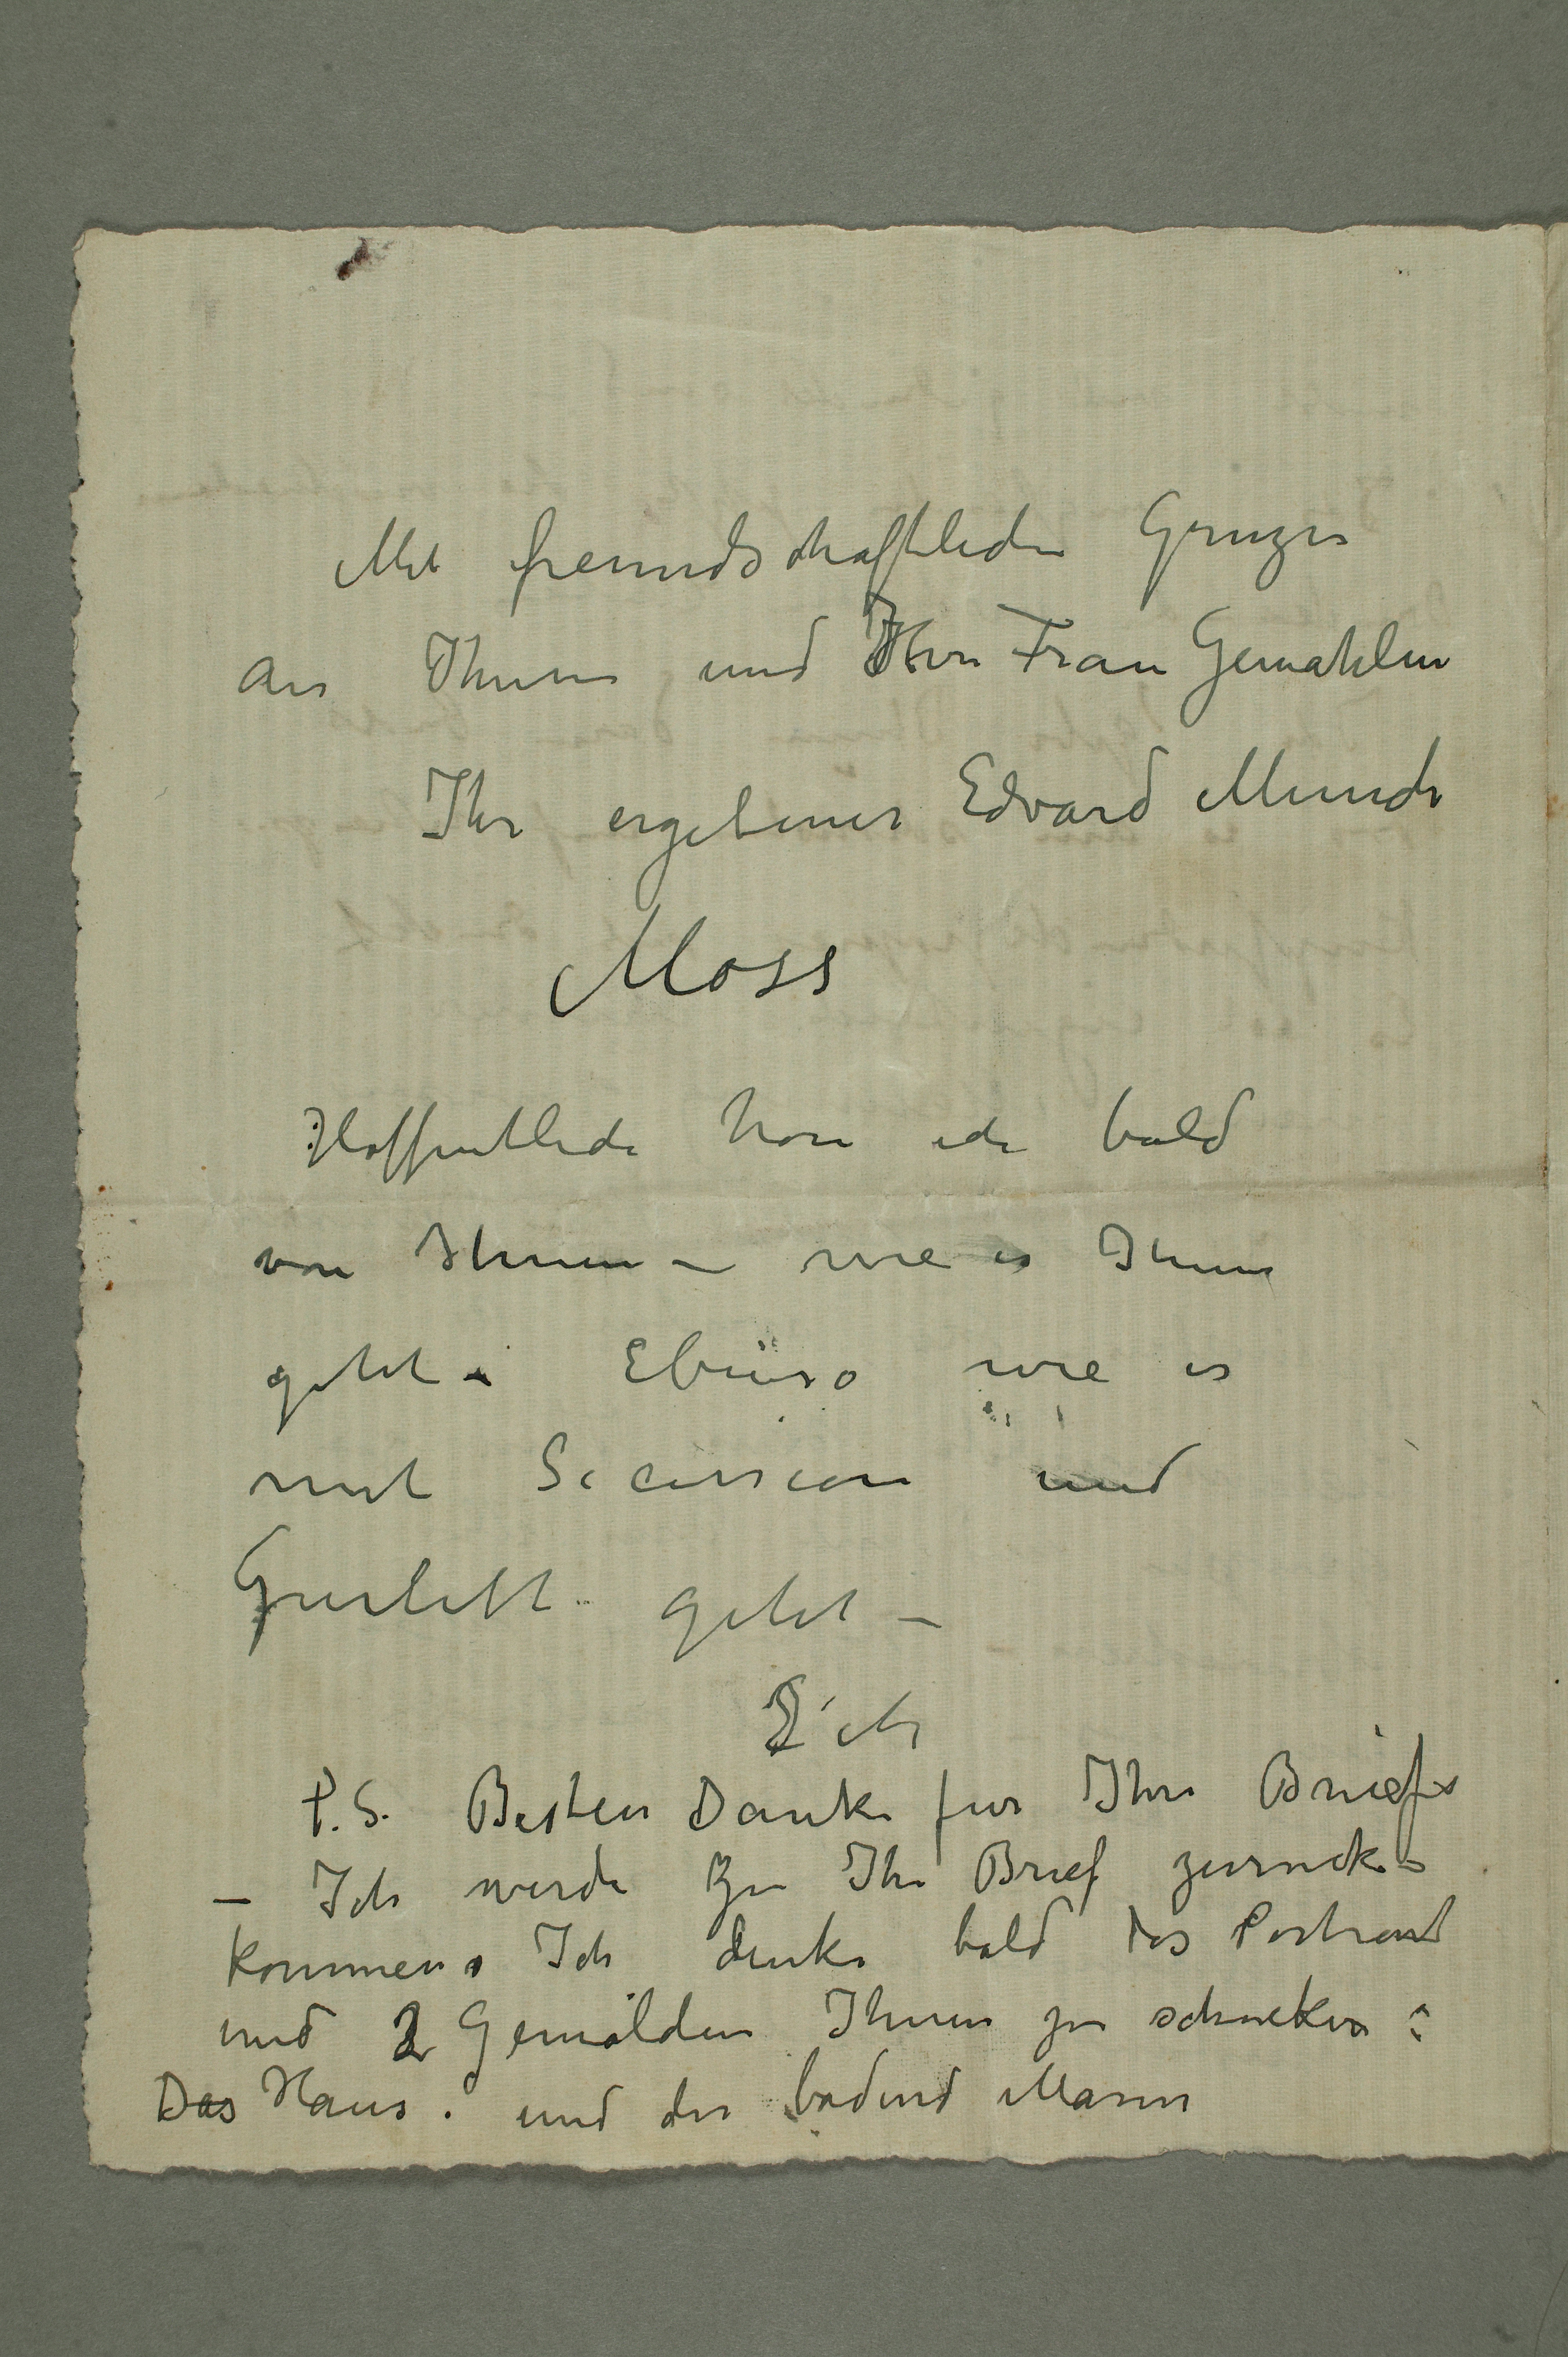 Mit freundschaftlichen Gruzen
an Ihnen und Ihre Frau Gemahlin
Ihr ergebener Edvard Munch
Moss
Hoffentlich höre ich bald
von Ihnen – wie es Ihnen
geht. Ebenso wie es
mit Secession und
Gurlitt geht –
P.S. Besten Dank für Ihre Briefe
– Ich werde zu Ihr Brief zurück-
kommen. Ich denke bald das Portrait
und 2 Gemälden Ihnen zu schicken:
Das Haus. und der badend Mann